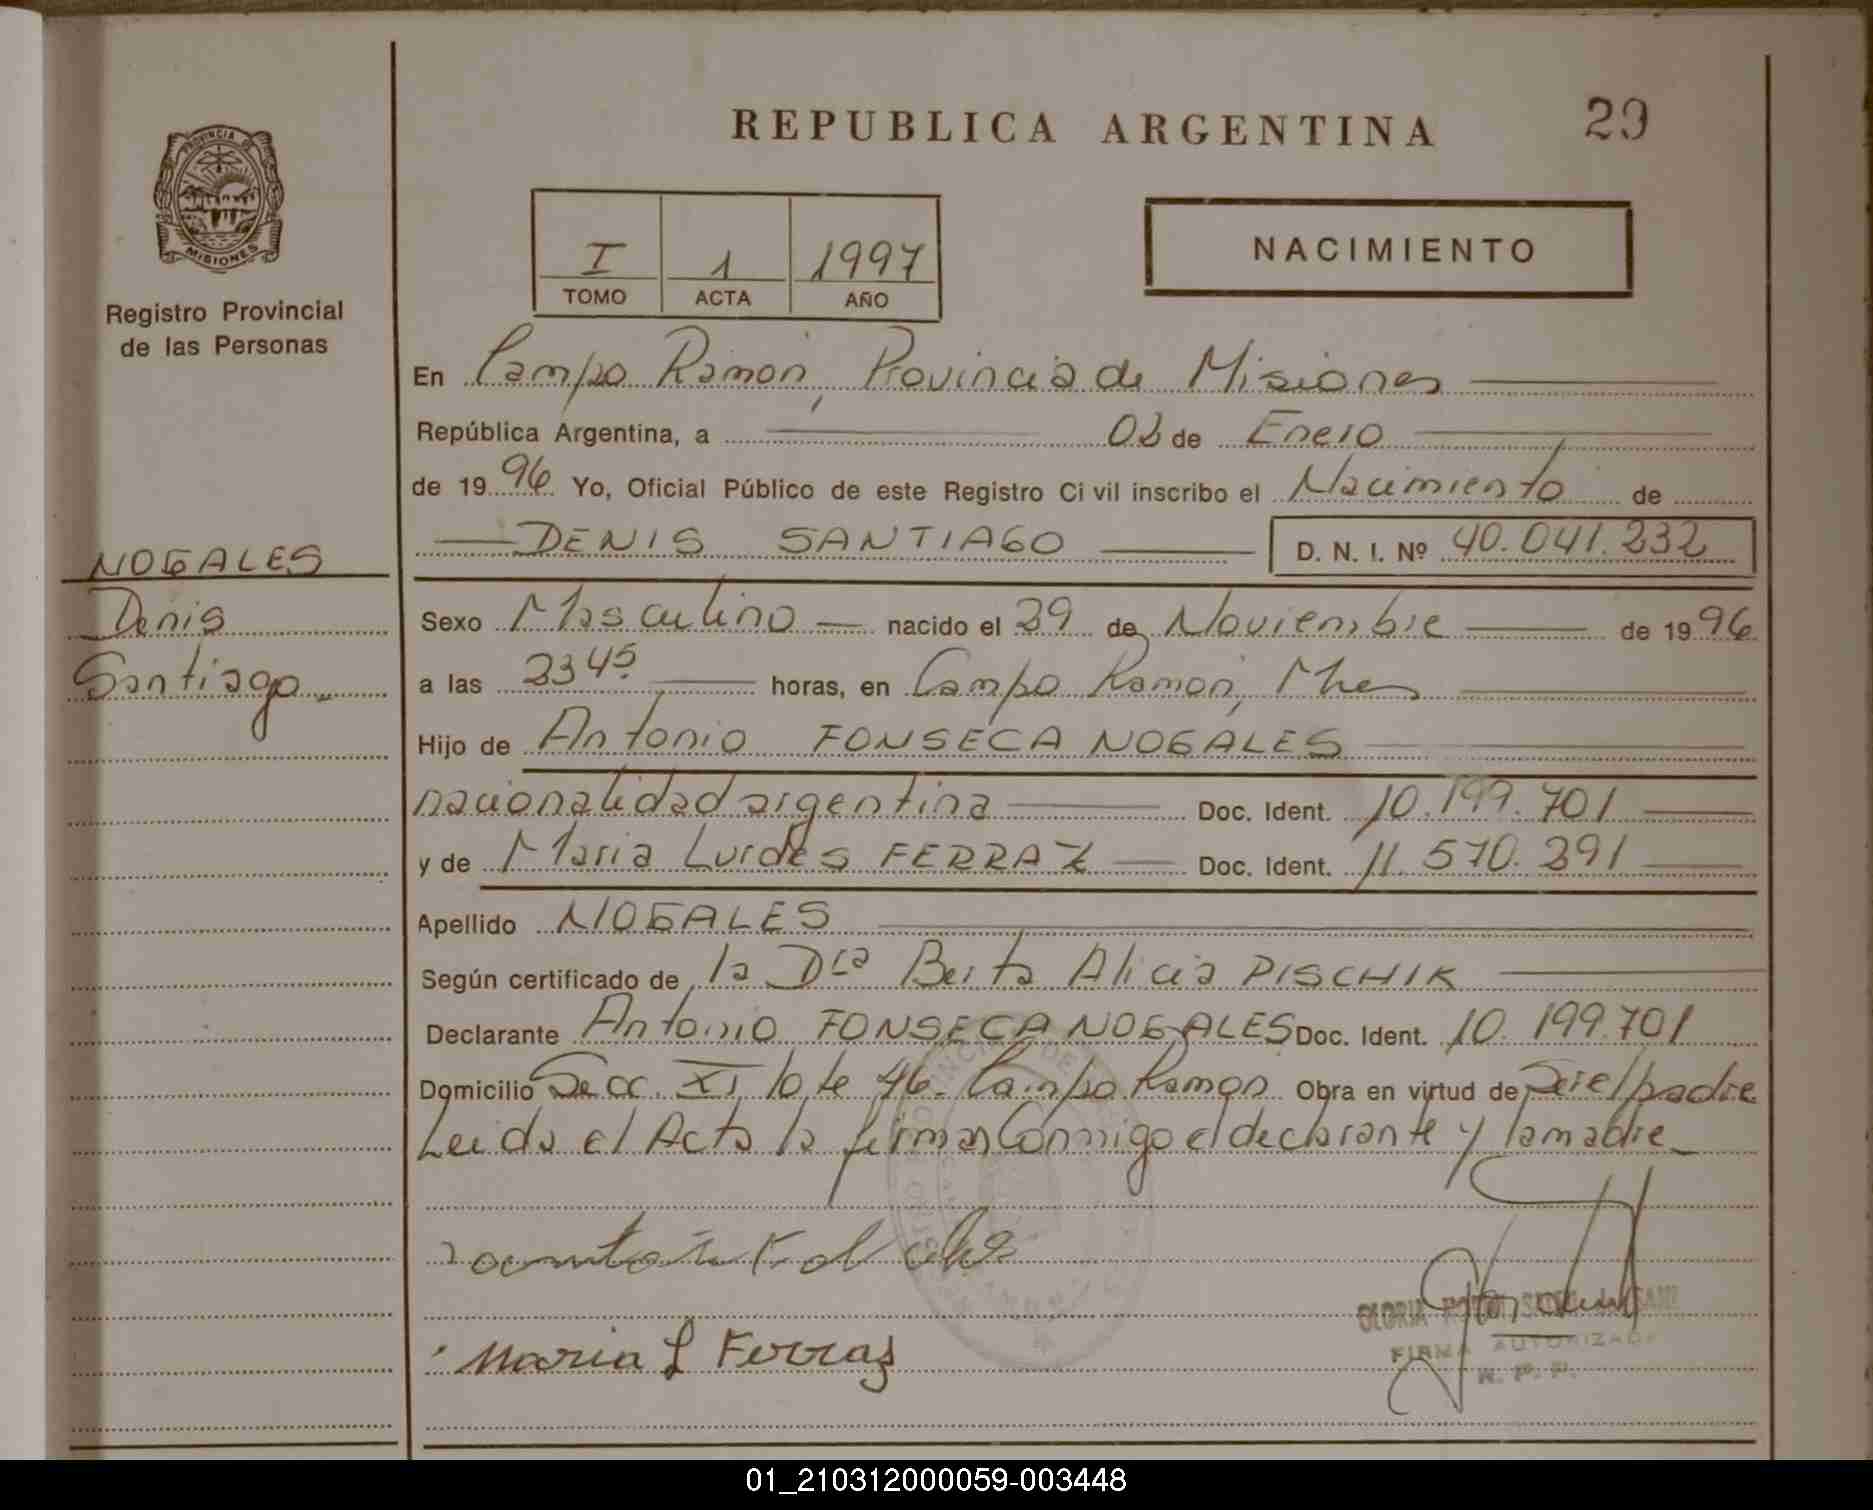 REPUBLICA ARGENTINA
29
PROVINCIA DE
MISIONES
Registro Provincial
de las Personas
I 1 1997
TOMO ACTA AÑO
NACIMIENTO
En Campo Ramón, Provincia de Misiones
República Argentina, a 02 de Enero
de 1996 Yo, Oficial Público de este Registro Civil inscribo el Nacimiento de
DENIS SANTIAGO D. N. I. Nº 40.041.232
NOGALES
Denis
Santiago
Sexo Masculino nacido el 29 de Noviembre de 1996
a las 2345 horas, en Campo Ramón, Mnes
Hijo de Antonio FONSECA NOGALES
nacionalidad argentina Doc. Ident. 10.199.701
y de Maria Lurdes FERRAZ Doc. Ident. 11.570.291
Apellido NOGALES
Según certificado de la Dra Berta Alicia PISCHIK
Declarante Antonio FONSECA NOGALES Doc. Ident. 10.199.701
Domicilio Secc. XI, lote 46. Campo Ramon Obra en virtud de ser el padre
Leida el Acta la firman conmigo el declarante y la madre
Maria L Ferraz
GLORIA
FIRMA AUTORIZADA
R. P. P.
01_210312000059-003448